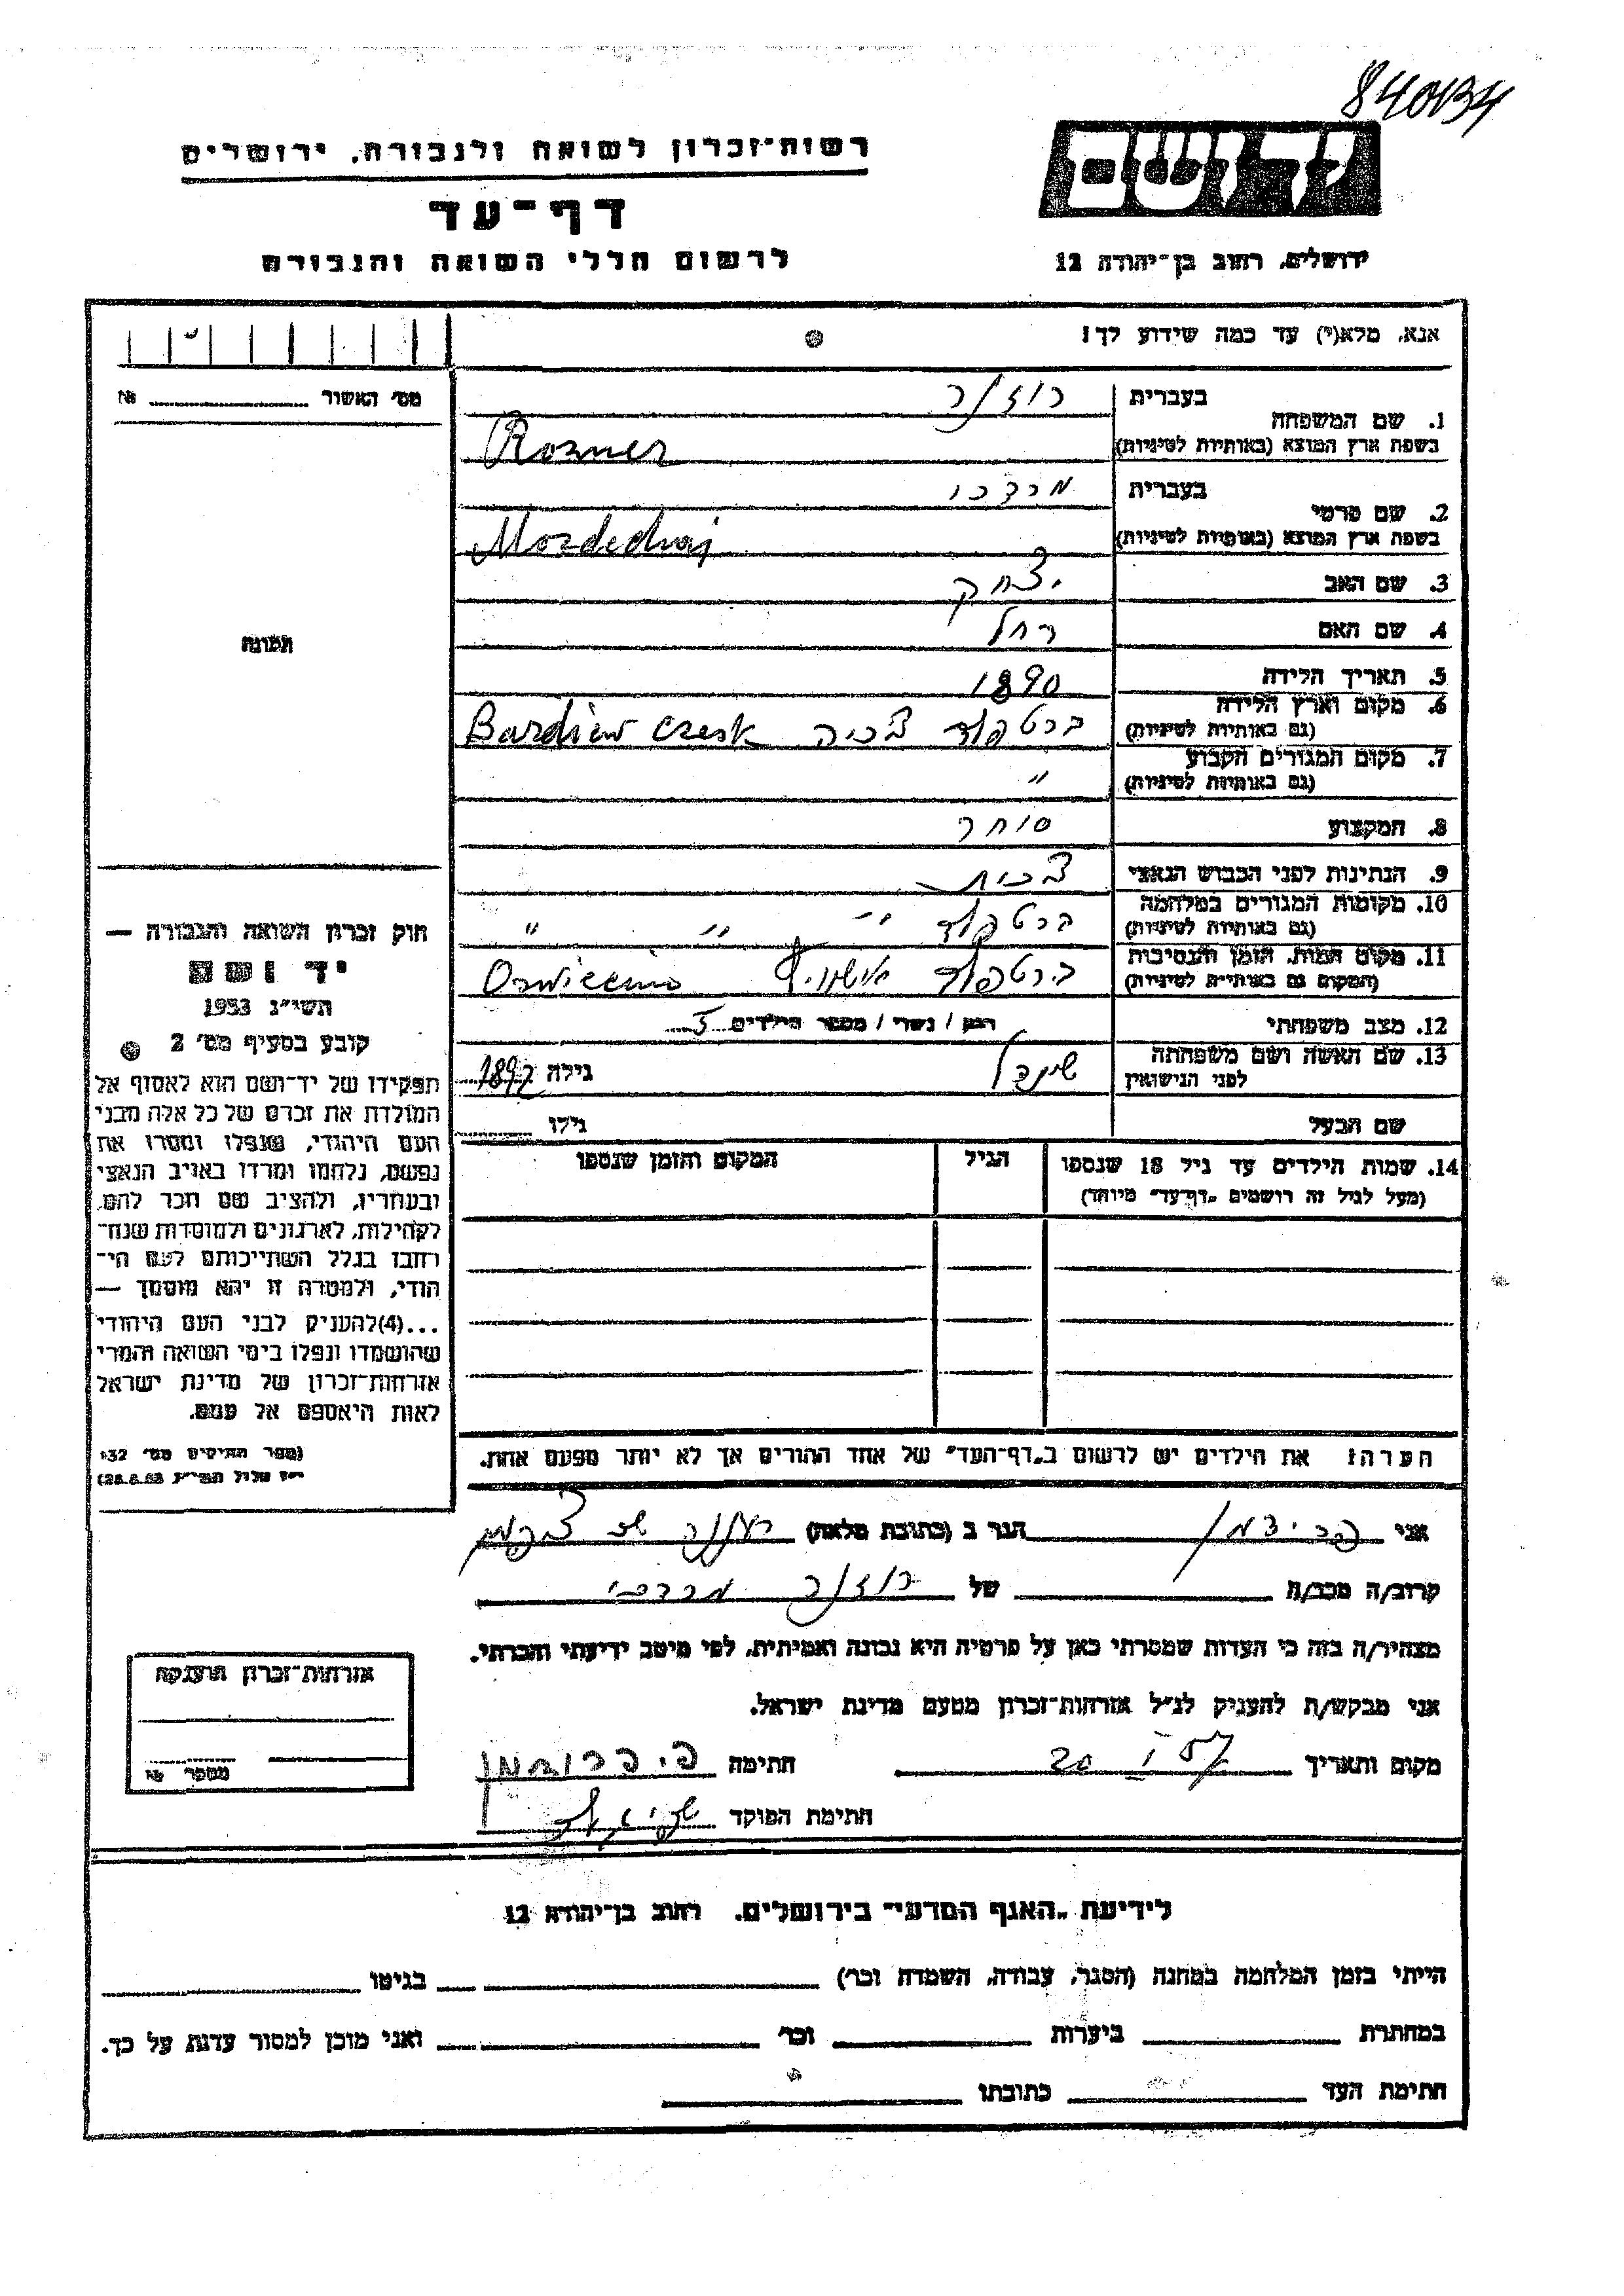 840134
רשות־זכרון לשואה ולגבורה, ירושלים
יד ושם
דף־עד
לרשום חללי השואה והגבורה
ירושלים, רחוב בן־יהודה 12
אנא, מלא(י) עד כמה שידוע לך!
מס׳ האשור
תמונה
1. שם המשפחה
בעברית רוזנר
בשפת ארץ המוצא (באותיות לטיניות) Rozner
2. שם פרטי
בעברית מרדכי
בשפת ארץ המוצא (באותיות לטיניות) Mordechaj
3. שם האב יצחק
4. שם האם רחל
5. תאריך הלידה 1890
6. מקום וארץ הלידה (גם באותיות לטיניות) ברטפלד צ׳כיה Bardiew czesk
7. מקום המגורים הקבוע (גם באותיות לטיניות) "
8. המקצוע סוחר
9. הנתינות לפני הכבוש הנאצי צ׳כית
10. מקומות המגורים במלחמה (גם באותיות לטיניות) ברטפלד " " "
11. מקום המות, הזמן והנסיבות (המקום גם באותיות לטיניות) ברטפלד אושוויץ Oswiecim
12. מצב משפחתי רווק / נשוי / מספר הילדים 5
13. שם האשה ושם משפחתה לפני הנישואין שינדל גילה 1897
שם הבעל גילו
14. שמות הילדים עד גיל 18 שנספו הגיל המקום והזמן שנספו
(מעל לגיל זה רושמים „דף־עד״ מיוחד)
הערה: את הילדים יש לרשום ב„דף־העד״ של אחד ההורים אך לא יותר מפעם אחת.
חוק זכרון השואה והגבורה —
יד ושם
תשי״ג 1953
קובע בסעיף מס׳ 2
תפקידו של יד־ושם הוא לאסוף אל
המולדת את זכרם של כל אלה מבני
העם היהודי, שנפלו ומסרו את
נפשם, נלחמו ומרדו באויב הנאצי
ובעוזריו, ולהציב שם וזכר להם,
לקהילות, לארגונים ולמוסדות שנח־
רבו בגלל השתייכותם לעם הי־
הודי, ולמטרה זו יהא מוסמך —
...(4)להעניק לבני העם היהודי
שהושמדו ונפלו בימי השואה והמרי
אזרחות־זכרון של מדינת ישראל
לאות היאספם אל עמם.
(ספר החוקים מס׳ 132
אני פרידמן הגר ב (כתובת מלאה) רעננה
קרוב/ה מכר/ה של רוזנר מרדכי
מצהיר/ה בזה כי העדות שמסרתי כאן על פרטיה היא נכונה ואמיתית, לפי מיטב ידיעתי והכרתי.
אני מבקש/ת להעניק לנ״ל אזרחות־זכרון מטעם מדינת ישראל.
מקום ותאריך 20 I 57 חתימה
חתימת הפוקד
אזרחות־זכרון הוענקה
מספר
לידיעת „האגף המדעי״ בירושלים. רחוב בן־יהודה 12
הייתי בזמן המלחמה במחנה (הסגר, עבודה, השמדה וכו׳) בגיטו
במחתרת ביערות וכו׳ ואני מוכן למסור עדות על כך.
חתימת העד כתובתו